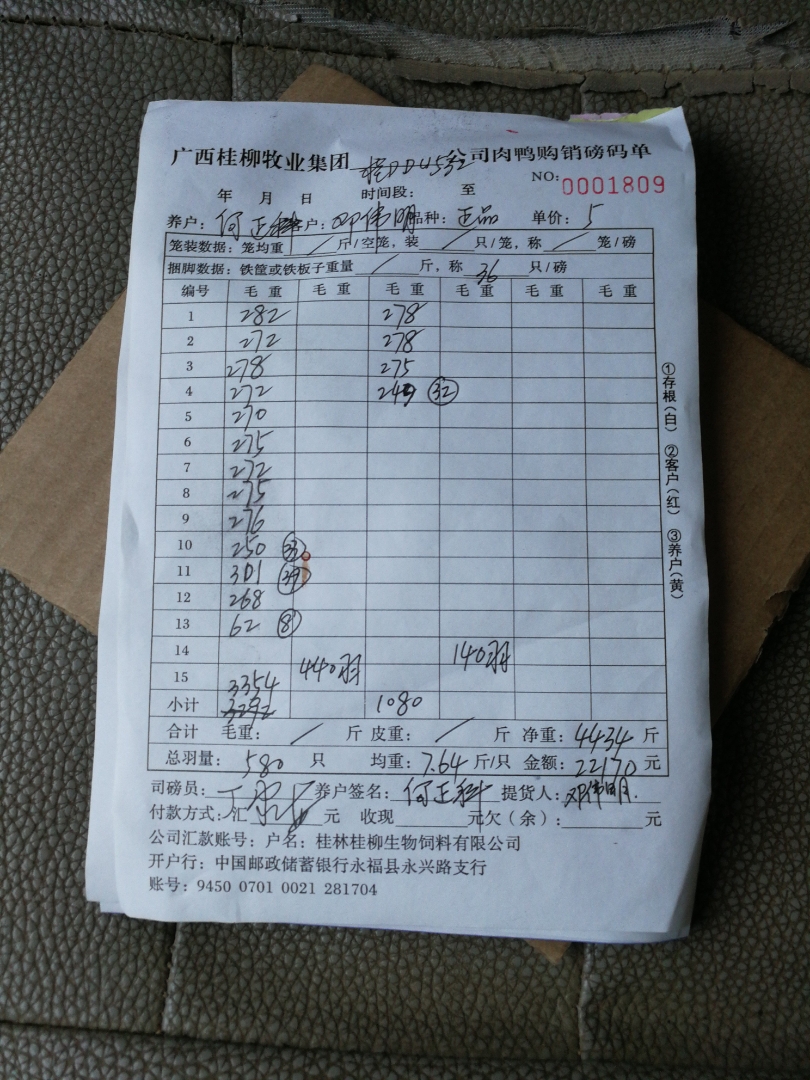 广西桂柳牧业集团 桂DD4532 公司肉鸭购销磅码单
NO: 0001809
年 月 日 时间段: 至
养户: 何正科 客户: 邓伟明 品种: 正品 单价: 5
笼装数据: 笼均重 / 斤/空笼, 装 / 只/笼, 称 / 笼/磅
捆脚数据: 铁筐或铁板子重量 / 斤, 称 36 只/磅
编号 毛重 毛重 毛重 毛重 毛重 毛重
1 282 278
2 272 278
3 278 275
4 272 249 32
5 270
6 275
7 272
8 275
9 276
10 250
11 301 39
12 268
13 62 8
14 440羽 140羽
15 3354
小计 3292 1080
合计 毛重: / 斤 皮重: / 斤 净重: 4434 斤
总羽量: 580 只 均重: 7.64 斤/只 金额: 22170 元
司磅员: 养户签名: 何正科 提货人: 邓伟明.
付款方式: 汇 元 收现 元欠(余): 元
公司汇款账号: 户名: 桂林桂柳生物饲料有限公司
开户行: 中国邮政储蓄银行永福县永兴路支行
账号: 9450 0701 0021 281704
①存根(白) ②客户(红) ③养户(黄)